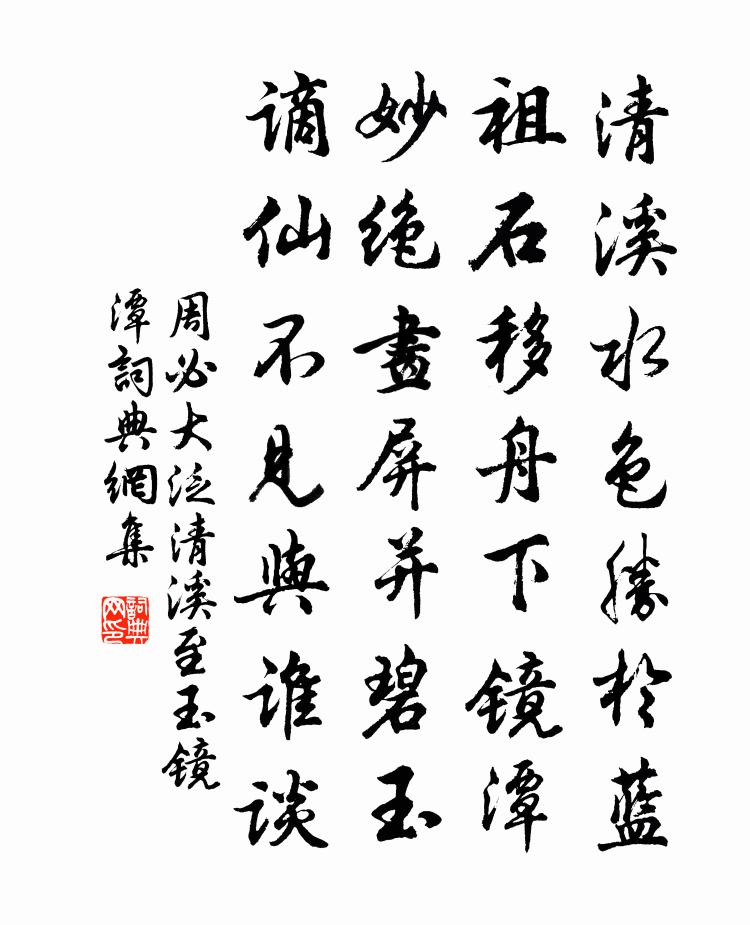 清溪水色勝於藍
祖石移舟下镜潭
妙绝畫屏并碧玉
谪仙不見與谁谈
周必大泛清溪至玉镜
潭詞典網集
詞典
网印